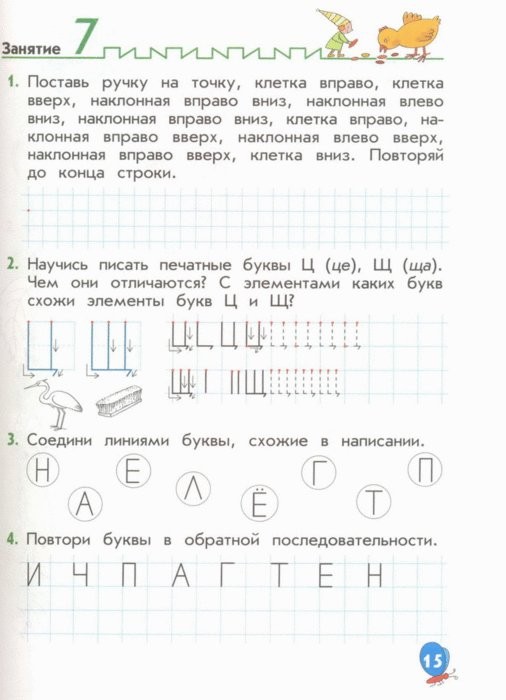 Занятие 7
1. Поставь ручку на точку, клетка вправо, клетка
вверх, наклонная вправо вниз, наклонная влево
вниз, наклонная вправо вниз, клетка вправо, на-
клонная вправо вверх, наклонная влево вверх,
наклонная вправо вверх, клетка вниз. Повторяй
до конца строки.
2. Научись писать печатные буквы Ц (це), Щ (ща).
Чем они отличаются? С элементами каких букв
схожи элементы букв Ц и Щ?
3. Соедини линиями буквы, схожие в написании.
Н Е Л Г П
А Ё Т
4. Повтори буквы в обратной последовательности.
И Ч П А Г Т Е Н
15